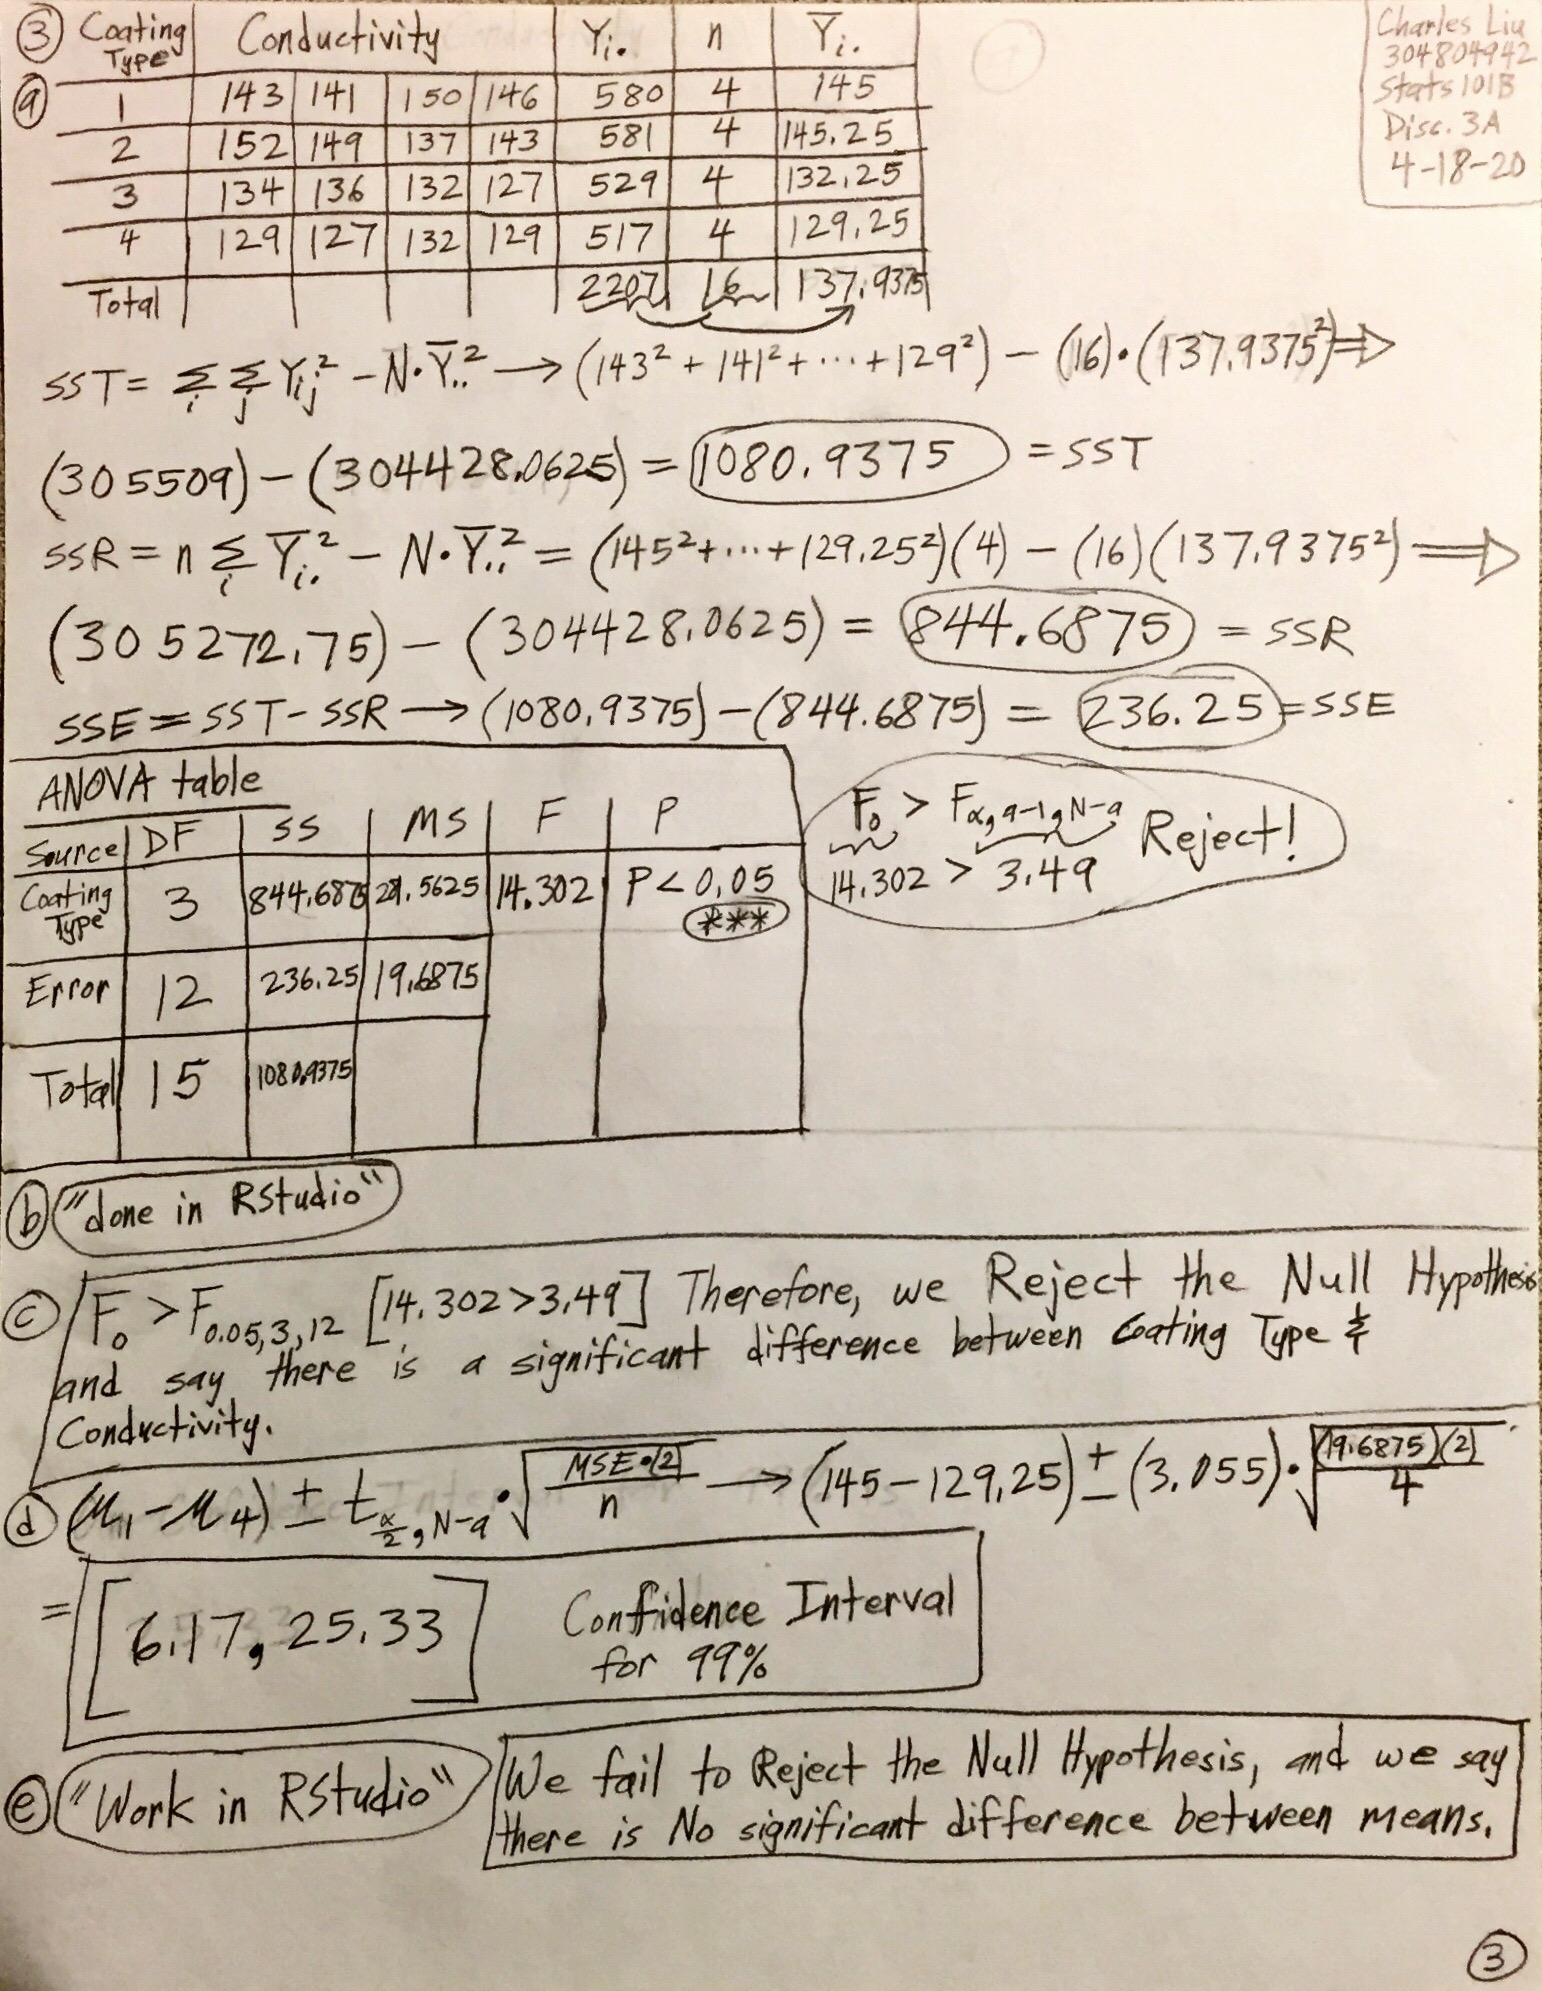 Charles Liu
304804942
Stats 101B
Disc. 3A
4-18-20
③ Coating Type | Conductivity | Yi. | n | Ȳi.
ⓐ 1 | 143 | 141 | 150 | 146 | 580 | 4 | 145
2 | 152 | 149 | 137 | 143 | 581 | 4 | 145.25
3 | 134 | 136 | 132 | 127 | 529 | 4 | 132.25
4 | 129 | 127 | 132 | 129 | 517 | 4 | 129.25
Total | 2207 | 16 | 137.9375
SST = Σi Σj Yij² - N·Ȳ..² → (143² + 141² + ... + 129²) - (16)·(137.9375²) ⇒
(305509) - (304428.0625) = 1080.9375 = SST
SSR = n Σi Ȳi.² - N·Ȳ..² = (145² + ... + 129.25²)(4) - (16)(137.9375²) ⇒
(305272.75) - (304428.0625) = 844.6875 = SSR
SSE = SST - SSR → (1080.9375) - (844.6875) = 236.25 = SSE
ANOVA table
Source | DF | SS | MS | F | P
Coating Type | 3 | 844.6875 | 281.5625 | 14.302 | P < 0.05 ***
Error | 12 | 236.25 | 19.6875
Total | 15 | 1080.9375
F₀ > Fα, a-1, N-a Reject!
14.302 > 3.49
ⓑ "done in RStudio"
ⓒ F₀ > F0.05,3,12 [14.302 > 3.49] Therefore, we Reject the Null Hypothesis
and say there is a significant difference between Coating Type &
Conductivity.
ⓓ (μ₁ - μ₄) ± tα/2, N-a · √(MSE·(2)/n) → (145 - 129.25) ± (3.055) · √((19.6875)(2)/4)
= [6.17, 25.33] Confidence Interval
for 99%
ⓔ "Work in RStudio" We fail to Reject the Null Hypothesis, and we say
there is No significant difference between means.
③